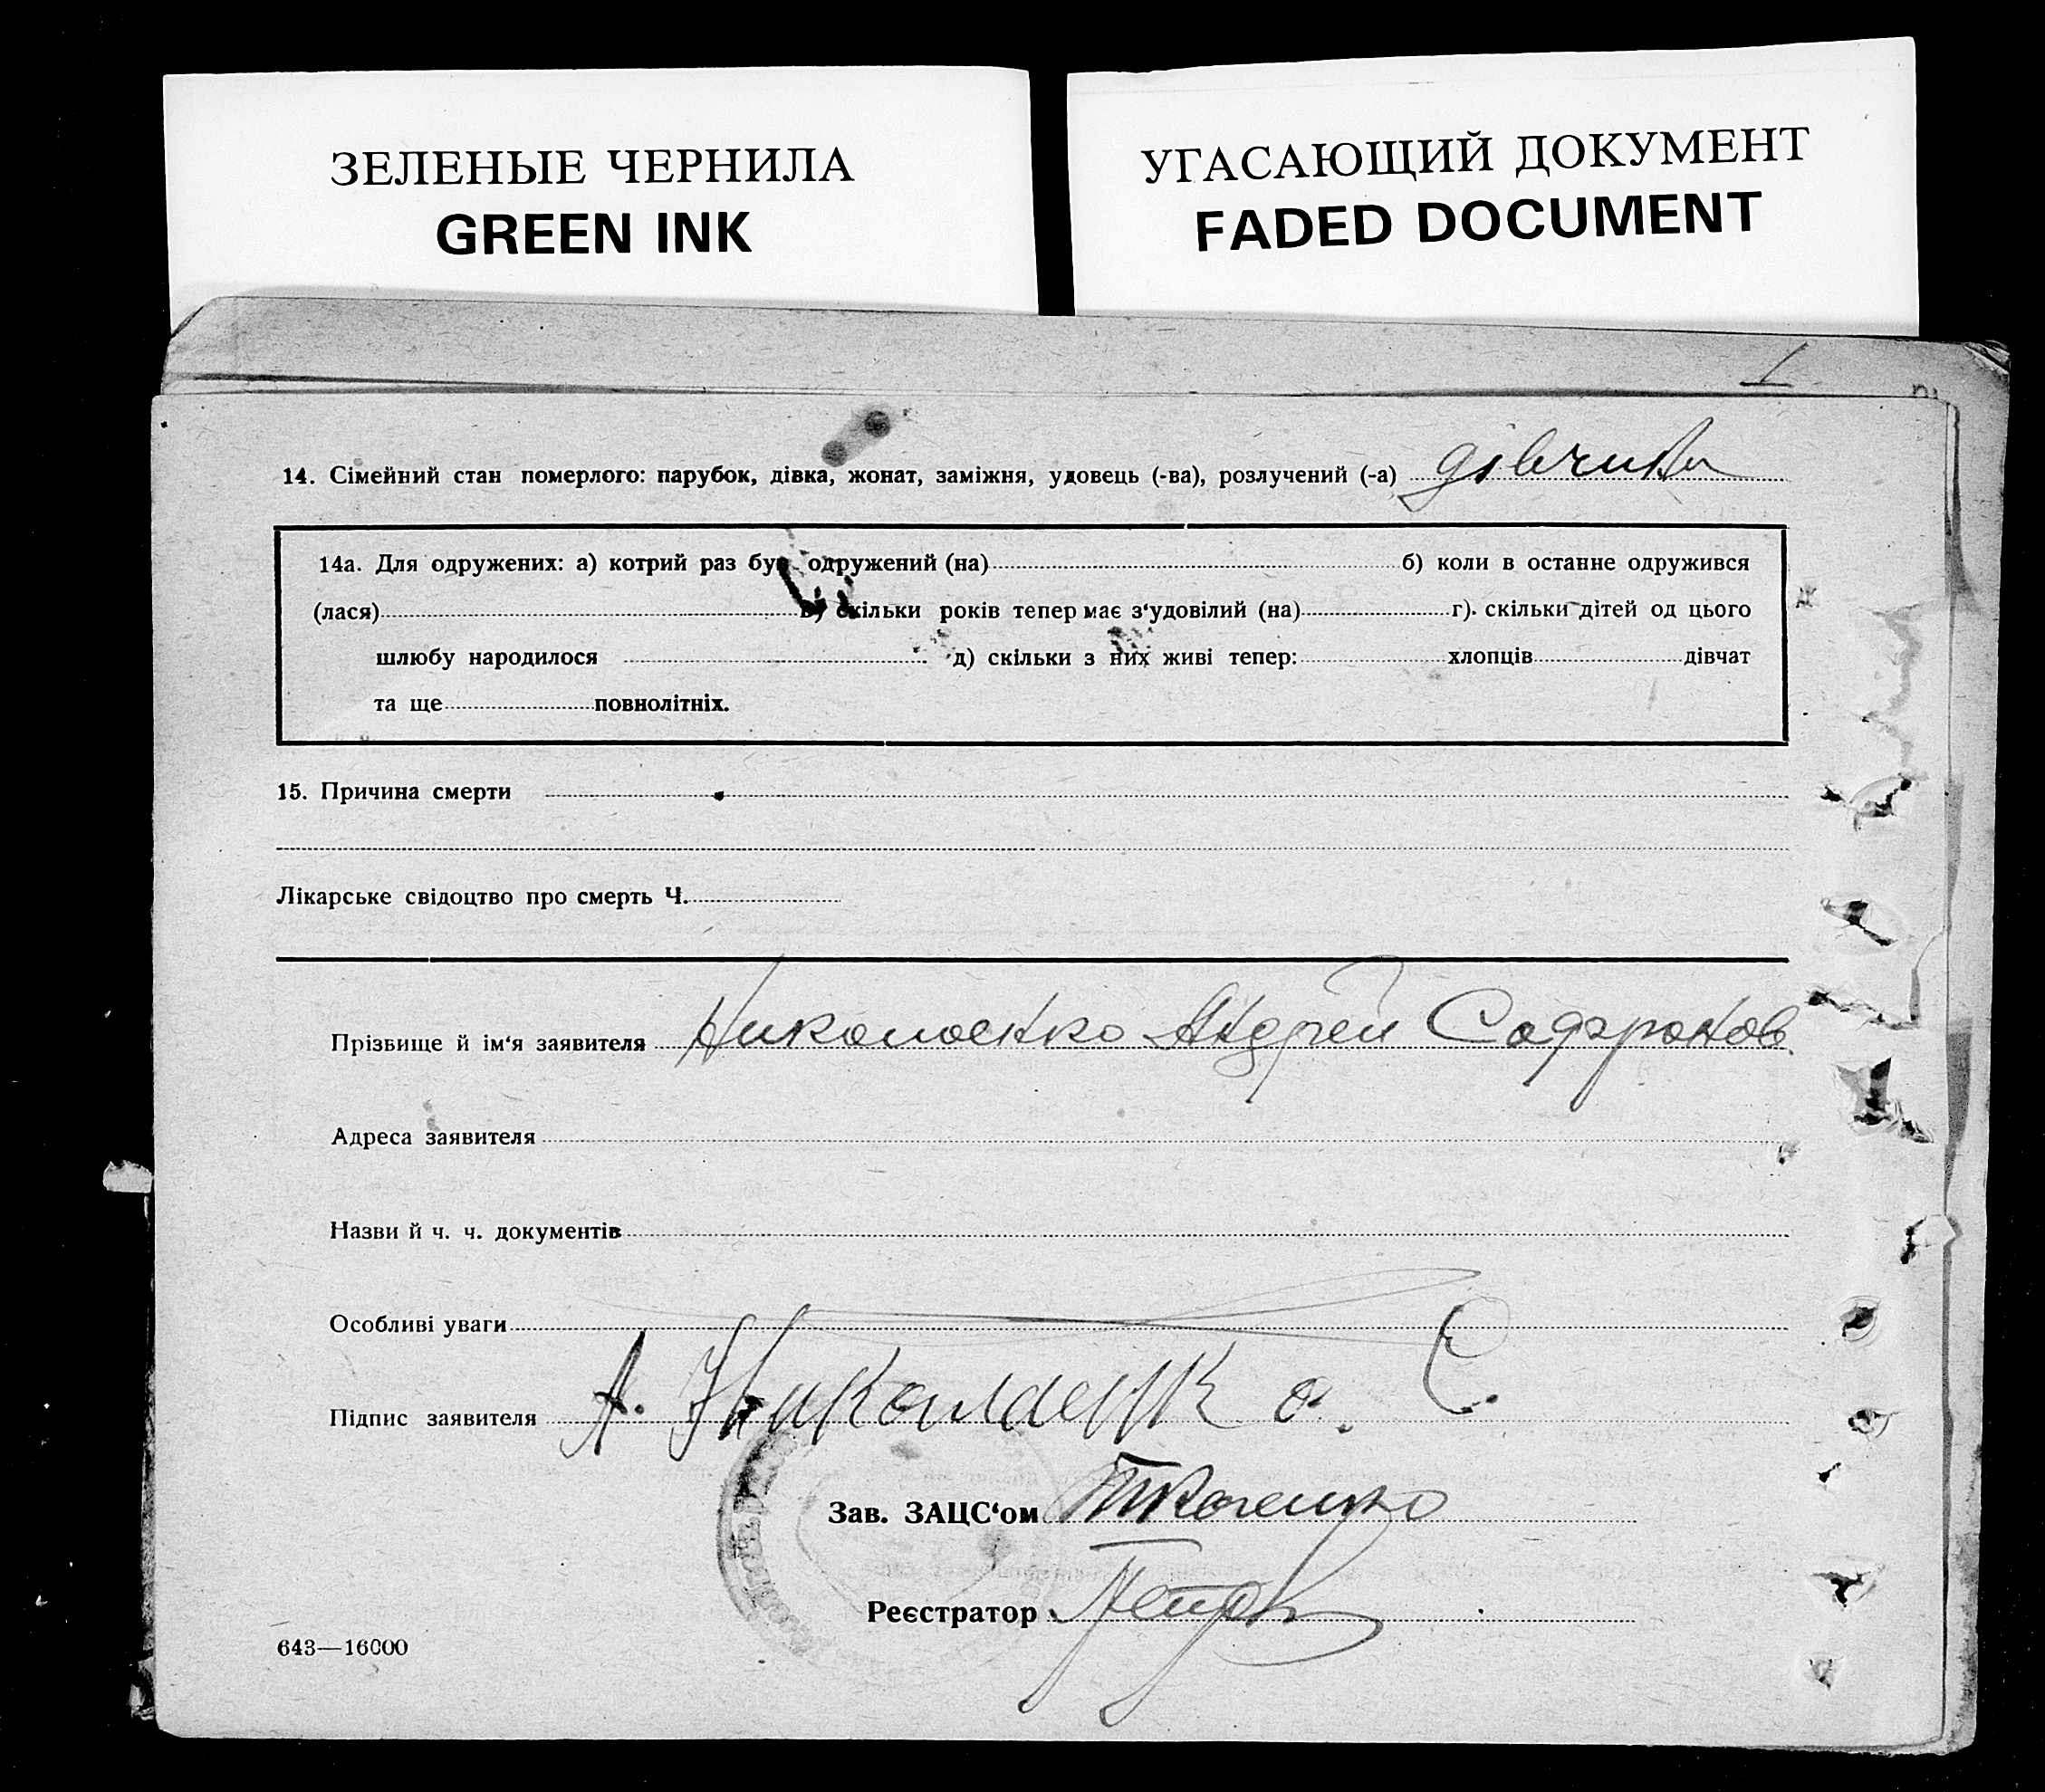 ЗЕЛЕНЫЕ ЧЕРНИЛА
GREEN INK
УГАСАЮЩИЙ ДОКУМЕНТ
FADED DOCUMENT
14. Сімейний стан померлого: парубок, дівка, жонат, заміжня, удовець (-ва), розлучений (-а) дівчина
14а. Для одружених: а) котрий раз був одружений (на) б) коли в останне одружився
(лася) в) скільки років тепер має з‘удовілий (на) г). скільки дітей од цього
шлюбу народилося д) скільки з них живі тепер: хлопців дівчат
та ще повнолітніх.
15. Причина смерти
Лікарське свідоцтво про смерть Ч.
Прізвище й ім‘я заявителя Николаенко Андрей Сафронов
Адреса заявителя
Назви й ч. ч. документів
Особливі уваги
Підпис заявителя А. Николаенко. С.
Зав. ЗАЦС‘ом Ткаченко
Реєстратор
643—16000